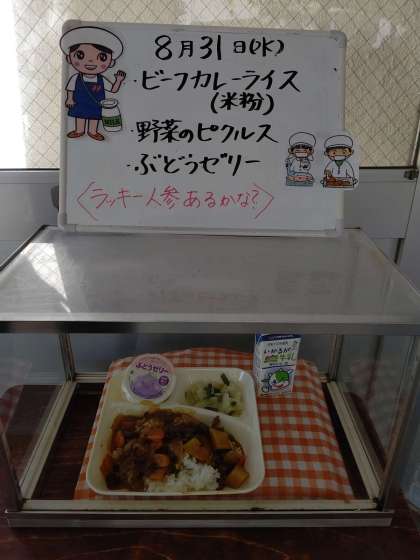 8月31日(水)
・ビーフカレーライス
(米粉)
・野菜のピクルス
・ぶどうゼリー
〈ラッキー人参あるかな?〉
MILK
ぶどうゼリー
いかるが
牛乳